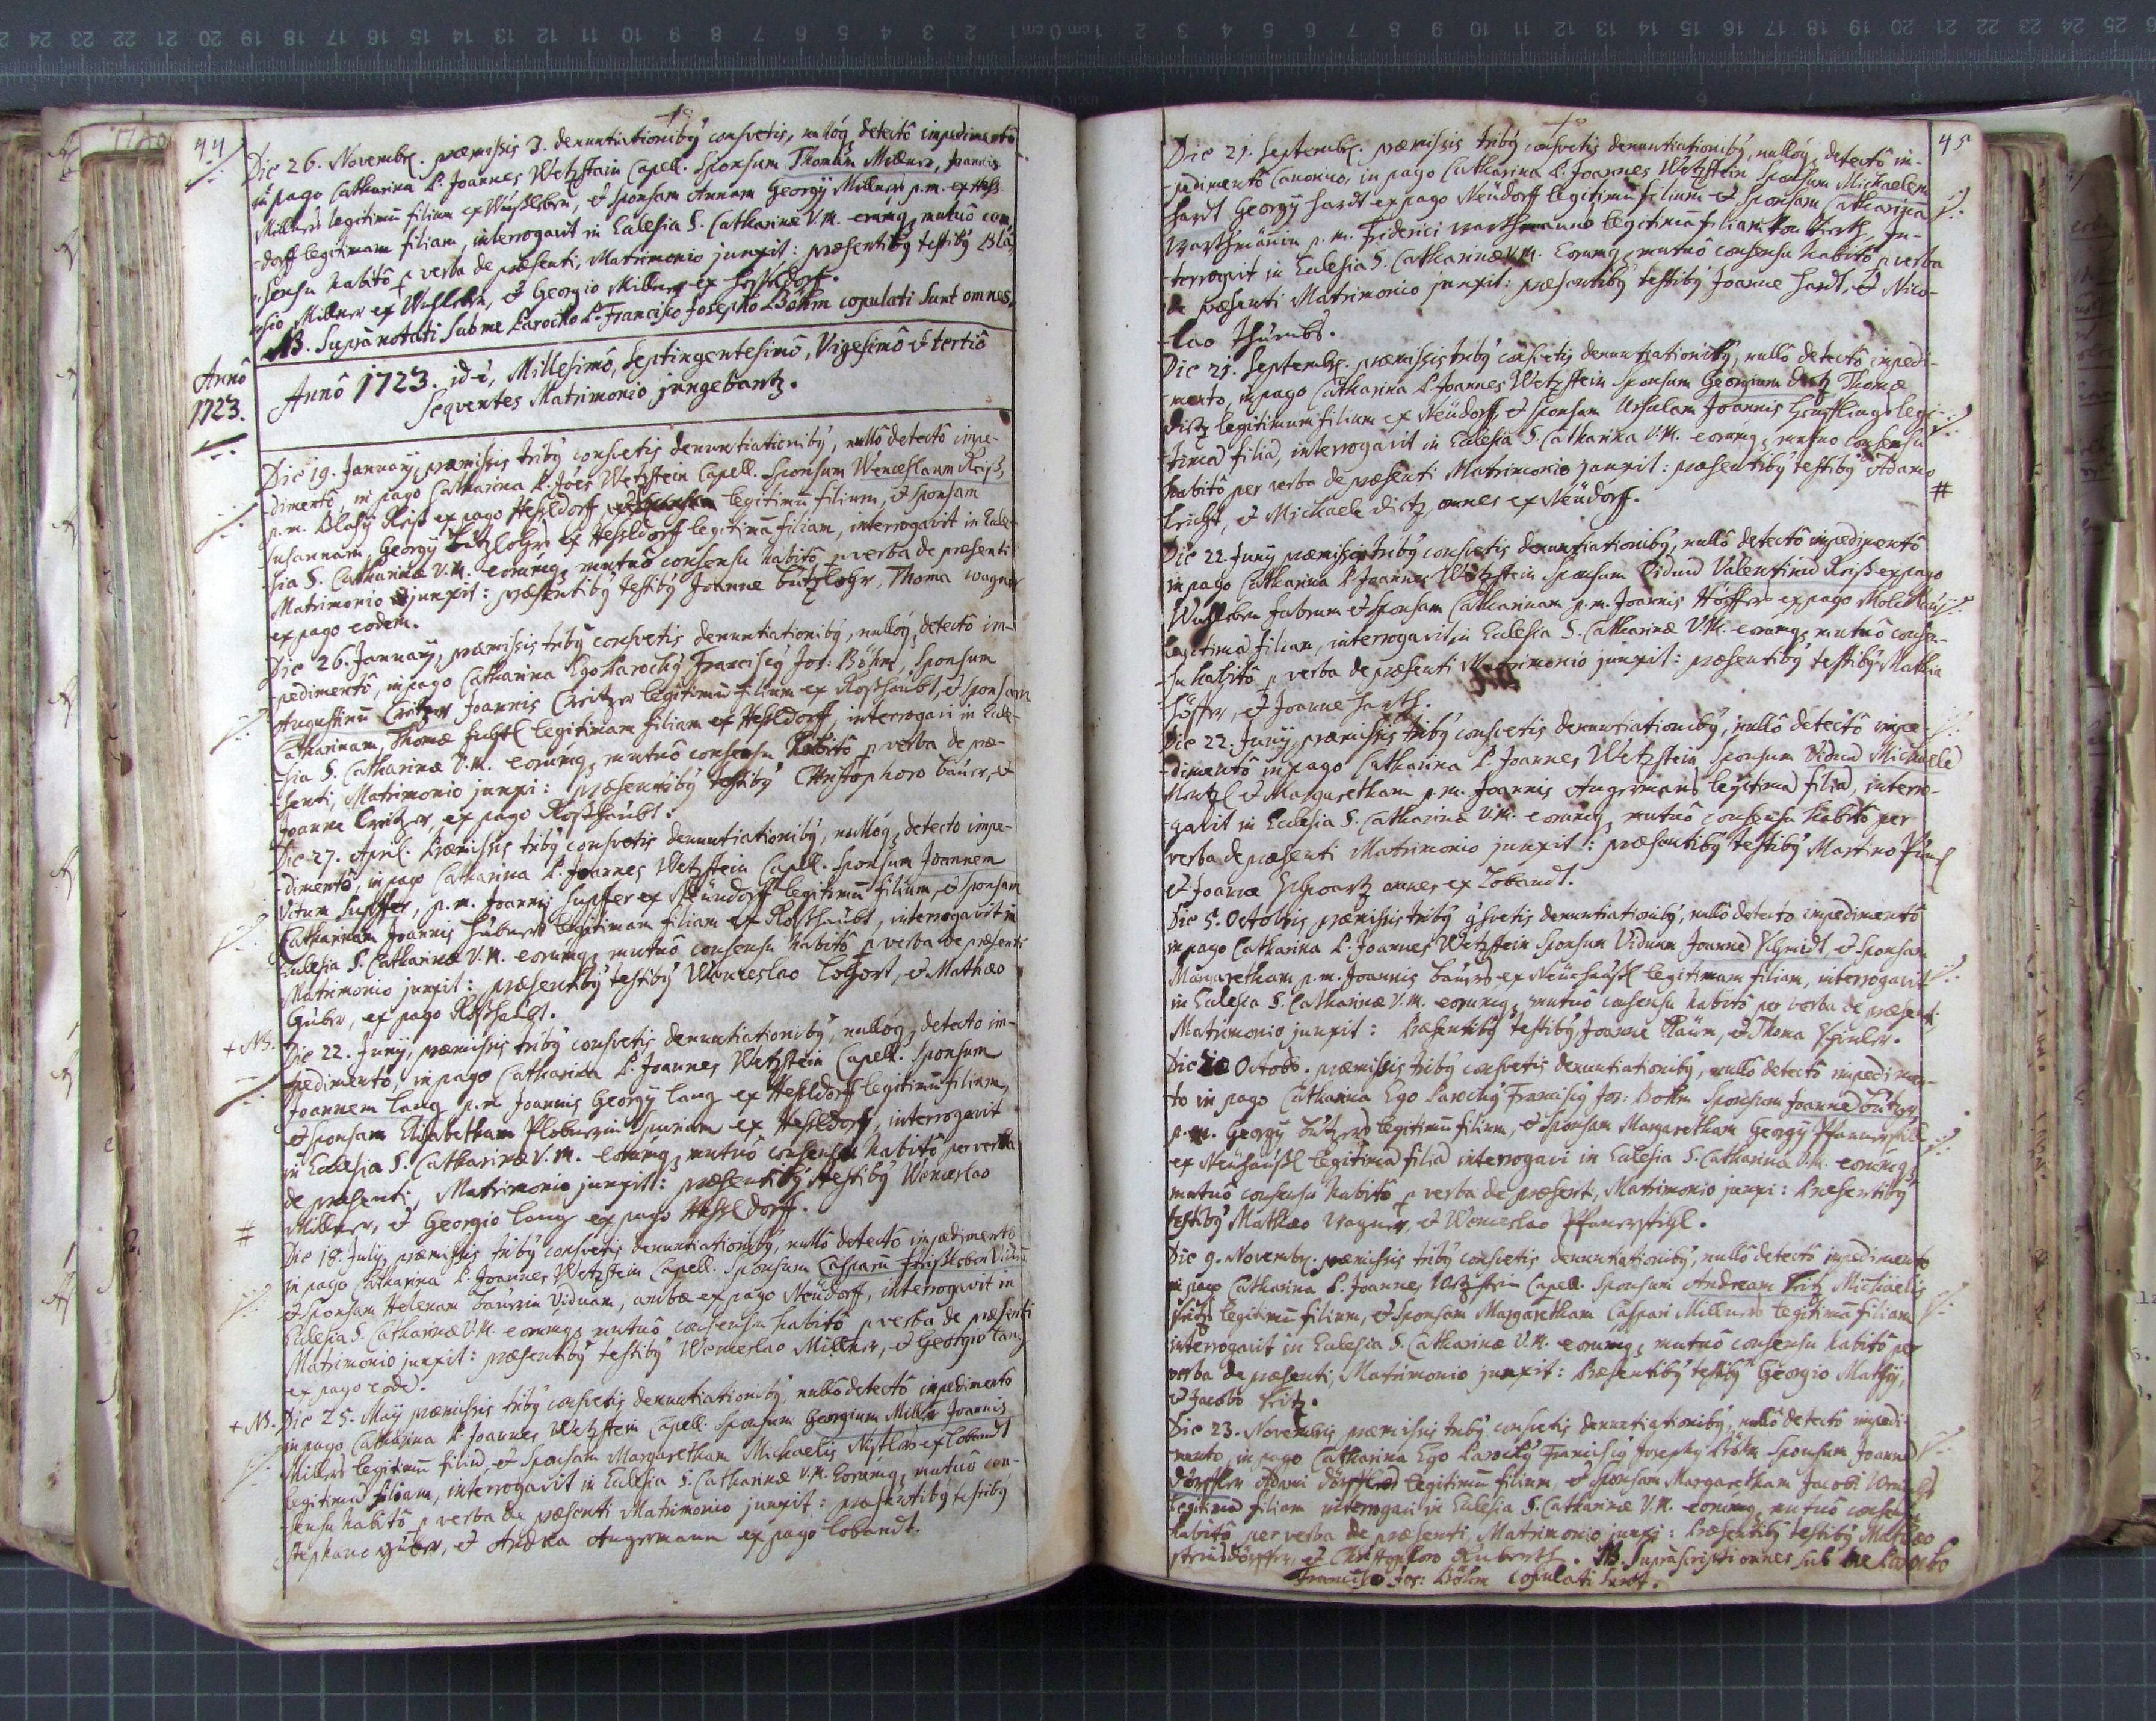 44
Die 26. Novembr. præmissis 3. denuntiationibꝰ consvetis, nulloq; detectô impedimentô
in pago Catharina P. Joannes Wetzstain Capell. Sponsum Thomam Millner, Joannis
Millners legitimū filium ex Wusleben, et sponsam Annam Georgÿ Millners p.m. ex Hesl-
-dorff legitimam filiam, interrogavit in Eclesia S. Catharinæ V.M. eorumq; mutuô con-
-sensu habitô p verba de præsenti, Matrimonio junxit: præsentibꝰ testibꝰ Bla-
-sio Millner ex Wusleben, et Georgio Millner ex Hesseldorf.
NB. Supranotati Sub me Parocho P. Francisco Josepho Böhm copulati sunt omnes.
Annô 1723.
Annô 1723. id ē, Millesimô, Septingentesimô, Vigesimô et tertiô
Seqventes Matrimonio jungebantz.
Die 19. Januarÿ, præmissis tribꝰ consvetis denuntiationibꝰ, nullô detectô impe-
-dimentô, in pago Catharina P. Joēs Wetzstein Capell. Sponsum Wenceslaum Reiß,
p.m. Blasÿ Reiß ex pago Hesldorff legitimū filium, et sponsam
Susannam, Georgÿ Butzlohrs ex Hesldorff legitimā filiam, interrogavit in Ecle-
-sia S. Catharinæ V.M. eorumq; mutuô consensu habitô p verba de præsenti
Matrimonio junxit: præsentibꝰ testibꝰ Joanne Butzlohr, Thoma Wagner
ex pago eodem.
Die 26. Januarÿ, præmissis tribꝰ consvetis denuntiationibꝰ, nulloq; detectô im-
-pedimentô, in pago Catharina Ego Parochꝰ Franciscꝰ Jos: Böhm, Sponsum
Augustinū Creitzer Joannis Creitzer legitimū filium ex Roßhaubt, et sponsam
Catharinam, Thomæ legitimam filiam ex Hesldorff, interrogavi in Ecle-
-sia S. Catharinæ V.M. eorumq; mutuô consensu habitô p verba de præ-
-senti, Matrimonio junxi: præsentibꝰ testibꝰ Christophoro Bauer, et
Joanne Creitzer, ex pago Roßhaubt.
Die 27. April. Præmissis tribꝰ consvetis denuntiationibꝰ, nulloq; detecto impe-
-dimentô, in pago Catharina P. Joannes Wetzstein Capell. Sponsum Joannem
Vitum Supffer, p.m. Joannis Supffer ex Neundorff legitimū filium, et sponsam
Catharinam Joannis Hubners legitimam filiam ex Roßhaubt, interrogavit in
Eclesia S. Catharinæ V.M. eorumq; mutuô consensu habitô p verba de præsenti
Matrimonio junxit: præsentibꝰ testibꝰ Wenceslao et Mathæo
Guber, ex pago Roßhaubt.
+ NB. Die 22. Junÿ, præmissis tribꝰ consvetis denuntiationibꝰ, nulloq; detecto im-
-pedimentô, in pago Catharina P. Joannes Wetzstein Capell. Sponsum
Joannem Lang p.m. Joannis Georgÿ Lang ex Hesldorff legitimū filium,
et sponsam Elisabetham Spuriam ex Hesldorff, interrogavit
in Eclesia S. Catharinæ V.M. eorumq; mutuô consensu habitô per verba
de præsenti, Matrimonio junxit: præsentibꝰ testibꝰ Wenceslao
Millner, et Georgio Lang ex pago Hesseldorff.
# Die 18. Julÿ, præmissis tribꝰ consvetis denuntiationibꝰ, nullô detectô impedimentô
in pago Catharina P. Joannes Wetzstein Capell. Sponsum Casparū Viduū
et sponsam Helenam Baurin Viduam, ambæ ex pago Neudorff, interrogavit in
Eclesia S. Catharinæ V.M. eorumq; mutuô consensu habitô p verba de præsenti
Matrimonio junxit: præsentibꝰ testibꝰ Wenceslao Millner, et Georgio Lang
ex pago eodē.
+ NB. Die 25. Maÿ præmissis tribꝰ consvetis denuntiationibꝰ, nullô detectô impedimento
in pago Catharina P. Joannes Wetzstein Capell. Sponsum Georgium Miller Joannis
Millers legitimū filiū, et sponsam Margaretham Michaelis ex Lobandt
legitimā filiam, interrogavit in Eclesia S. Catharinæ V.M. Eorumq; mutuô con-
-sensu habitô p verba de præsenti Matrimonio junxit: præsentibꝰ testibꝰ
Stephano Guber, et Andrea Angermann ex pago Lobandt.
45
Die 21. Septembr. præmissis tribꝰ consvetis denuntiationibꝰ, nulloq; detectô im-
-pedimentô Canonico, in pago Catharina P. Joannes Wetzstein Sponsum Michaelem
Hardt Georgÿ Hardt ex pago Neudorff legitimū filium et sponsam Catharinā
Warthmänin p.m. Friderici Warthmanns legitimā filiam in-
terrogavit in Eclesia S. Catharinæ V.M. Eorumq; mutuô consensu habitô p verba
de præsenti Matrimonio junxit: præsentibꝰ testibꝰ Joanne Hardt, et Nico-
-lao Thumbs.
Die 21. Septembr. præmissis tribꝰ consvetis denuntiationibꝰ, nullô detectô impedi-
-mento, in pago Catharina P. Joannes Wetzstein Sponsum Georgium dietz Thomæ
dietz legitimum filium ex Neudorff, et sponsam Ursulam Joannis legi-
-timā filiā, interrogavit in Eclesia S. Catharina V.M. eorumq; mutuo consensu
habitô per verba de præsenti Matrimonio junxit: præsentibꝰ testibꝰ Adamo
et Michaele dietz omnes ex Neudorff. #
Die 22. Junÿ præmissis tribꝰ consvetis denuntiationibꝰ, nullô detectô impedimentô
in pago Catharina P. Joannes Wetzstein Sponsum Viduū Valentinū Reiß ex pago
Wusleben fabrum et sponsam Catharinam p.m. Joannis Höffer ex pago
legitimā filiam, interrogavit in Eclesia S. Catharinæ V.M. eorumq; mutuô consen-
-su habitô p verba de præsenti Matrimonio junxit: præsentibꝰ testibꝰ Mathia
Höffer, et Joanne Harth.
Die 22. Junÿ, præmissis tribꝰ consvetis denuntiationibꝰ, nullô detectô impe-
-dimentô in pago Catharina P. Joannes Wetzstein Sponsum Viduū Michaelē
et Margaretham p.m. Joannis Angermans legitimā filiā, interro-
-gavit in Eclesia S. Catharinæ V.M. eorumq; mutuô consensu habitô per
verba de præsenti Matrimonio junxit: præsentibꝰ testibꝰ Martino
et Joanne Schwartz omnes ex Lobandt.
Die 5. Octobris præmissis tribꝰ consvetis denuntiationibꝰ, nullô detecto impedimentô
in pago Catharina P. Joannes Wetzstein Sponsum Viduum Joannē Schmidt, et sponsam
Margaretham p.m. Joannis Baurs ex Neuhäusl legitimam filiam, interrogavit
in Eclesia S. Catharinæ V.M. eorumq; mutuô consensu habitô per verba de præsenti,
Matrimonio junxit: Præsentibꝰ testibꝰ, Joanne et Thoma
Die Octobr. præmissis tribꝰ consvetis denuntiationibꝰ, nullo detectô impedimen-
to in pago Catharina Ego Parochꝰ Franciscꝰ Jos: Bohm Sponsum Joannē
p.m. Georgÿ legitimū filium, et sponsam Margaretham Georgÿ
ex Neuhäusl legitimā filiā interrogavi in Eclesia S. Catharinæ V.M. eorumq;
mutuô consensu habitô p verba de præsenti, Matrimonio junxi: Præsentibꝰ
testibꝰ Mathæo Wagner, et Wenceslao
Die 9. Novembr. præmissis tribꝰ consvetis denuntiationibꝰ, nullô detectô impedimento
in pago Catharina P. Joannes Wetzstein Capell. Sponsum Andream Fritz Michaelis
Fritz legitimū filium, et sponsam Margaretham Caspari Millners legitimā filiam
interrogavit in Eclesia S. Catharinæ V.M. eorumq; mutuo consensu habitô per
verba de præsenti, Matrimonio junxit: Præsentibꝰ testibꝰ Georgio
et Jacobo Fritz.
Die 23. Novembris præmissis tribꝰ consvetis denuntiationibꝰ, nullô detectô impedi-
mento, in pago Catharina Ego Parochꝰ Franciscꝰ Josephꝰ Böhm Sponsum Joannē
Dörffler Adami Dörfflers legitimū filium, et sponsam Margaretham Jacobi
legitimā filiam interrogavi in Eclesia S. Catharinæ V.M. eorumq; mutuô consensu
habitô per verba de præsenti, Matrimonio junxi: Præsentibꝰ testibꝰ Mathæo
et Christophoro. NB. Suprascripti omnes sub me Parocho
Francisco Jos: Böhm copulati sunt.